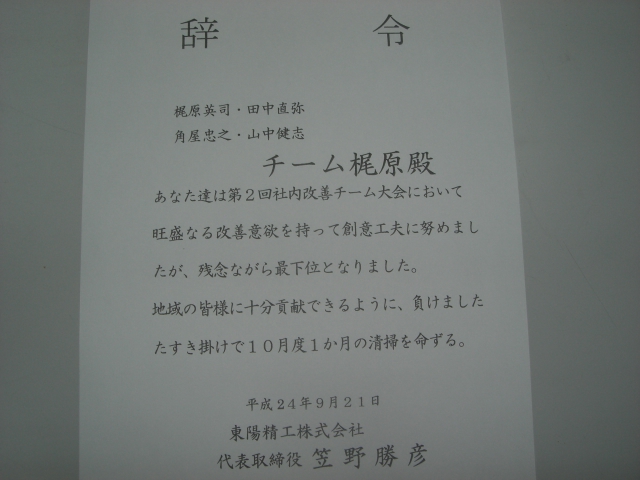 辞令
梶原英司・田中直弥
角屋忠之・山中健志
チーム梶原殿
あなた達は第２回社内改善チーム大会において
旺盛なる改善意欲を持って創意工夫に努めまし
たが、残念ながら最下位となりました。
地域の皆様に十分貢献できるように、負けました
たすき掛けで１０月度１か月の清掃を命ずる。
平成２４年９月２１日
東陽精工株式会社
代表取締役 笠野勝彦